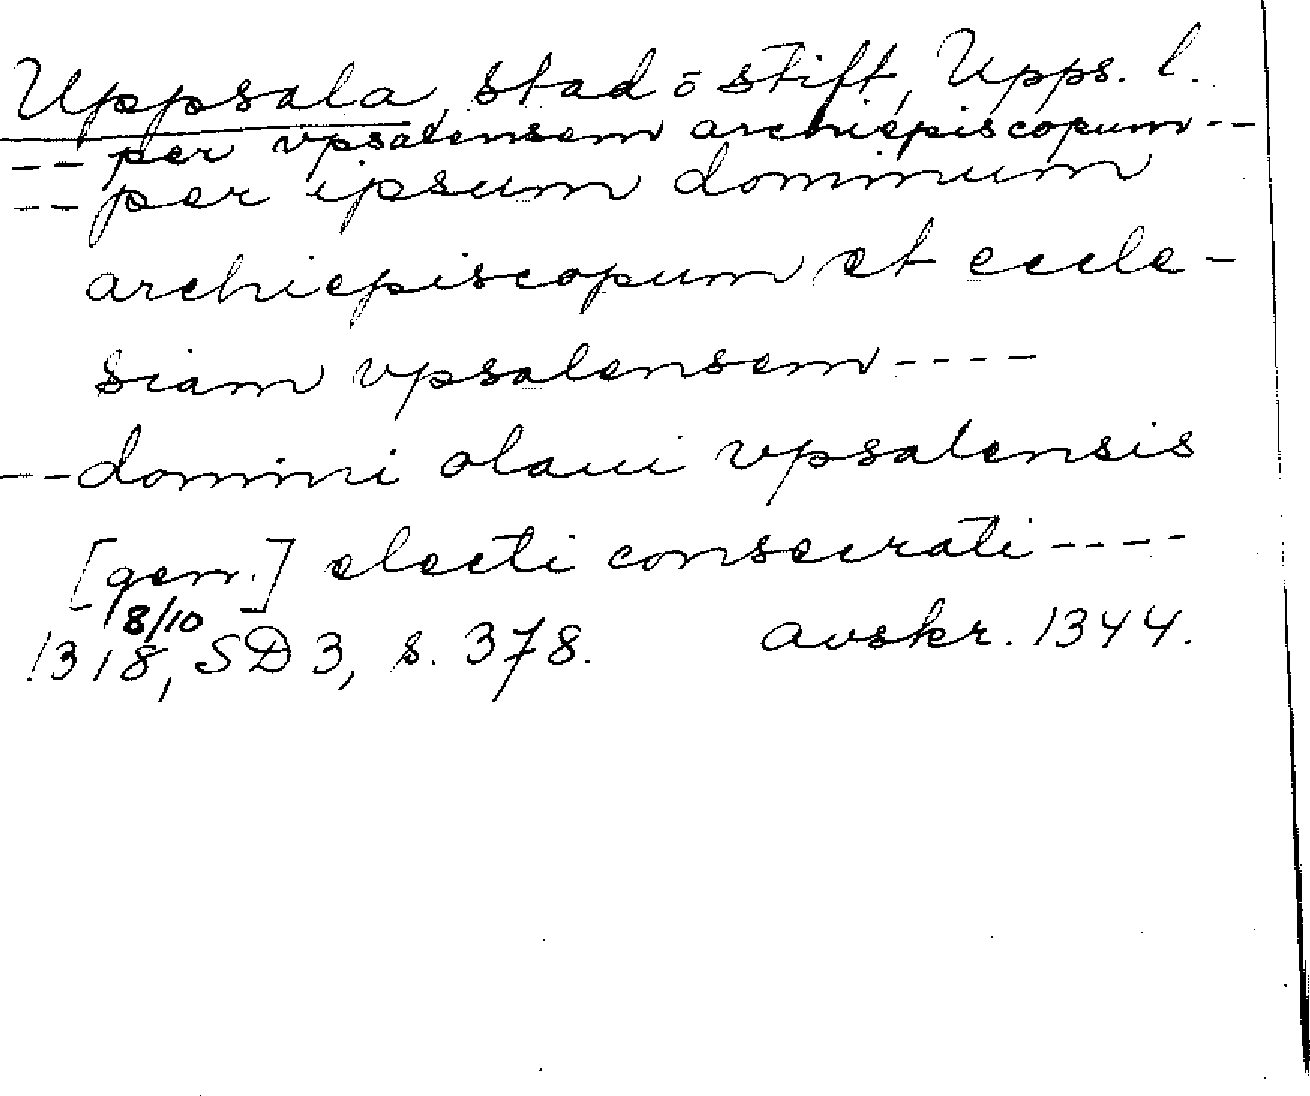 Uppsala, stad o stift, Upps. l.
-- per vpsalensem archiepiscopum --
-- per ipsum dominum
archiepiscopum et eccle-
siam vpsalensem ----
-- domini olaui vpsalensis
[gen.] electi consecrati ----
8/10
1318, SD 3, s. 378. avskr. 1344.